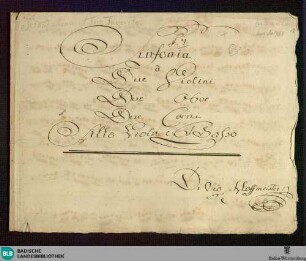 Sinfonia
a
Due Violini
Due Oboe
Due Corni
Alto Viola e Basso
Hoffmeister
BLB BADISCHE
LANDESBIBLIOTHEK
Baden-Württemberg